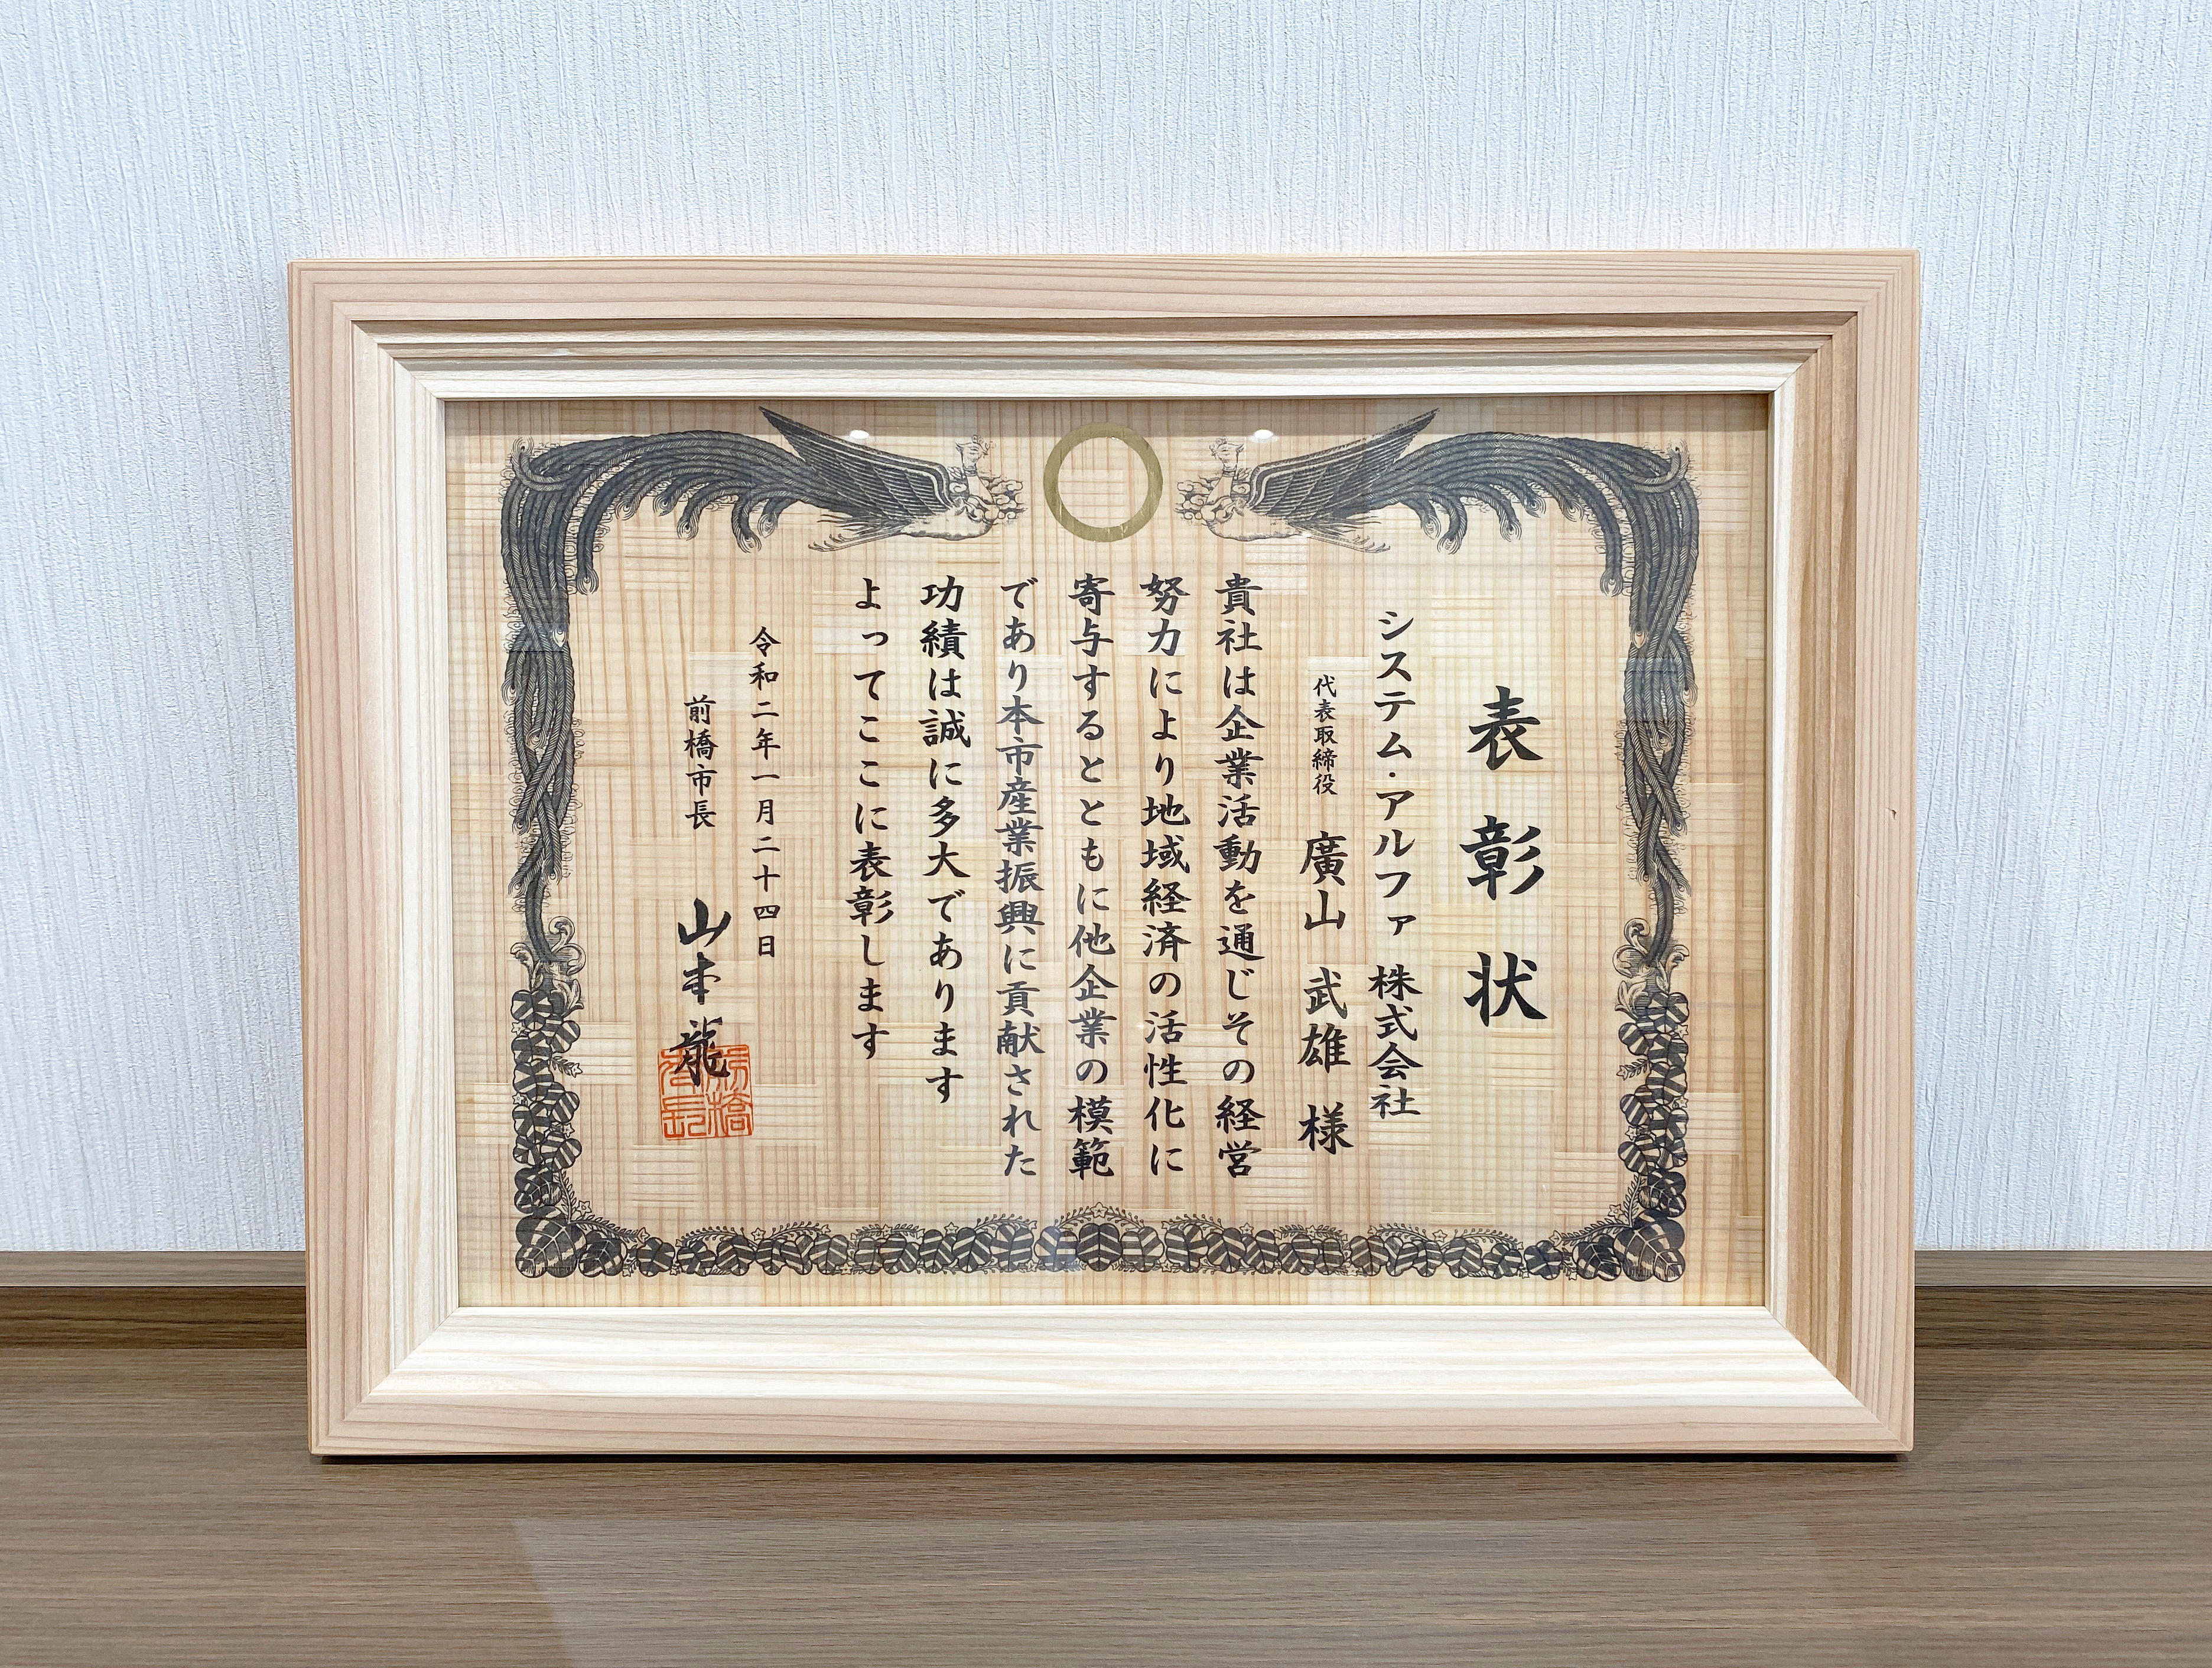 表彰状
システム・アルファ 株式会社
代表取締役 廣山 武雄 様
貴社は企業活動を通じその経営
努力により地域経済の活性化に
寄与するとともに他企業の模範
であり本市産業振興に貢献された
功績は誠に多大であります
よってここに表彰します
令和二年一月二十四日
前橋市長 山本龍
前橋市長